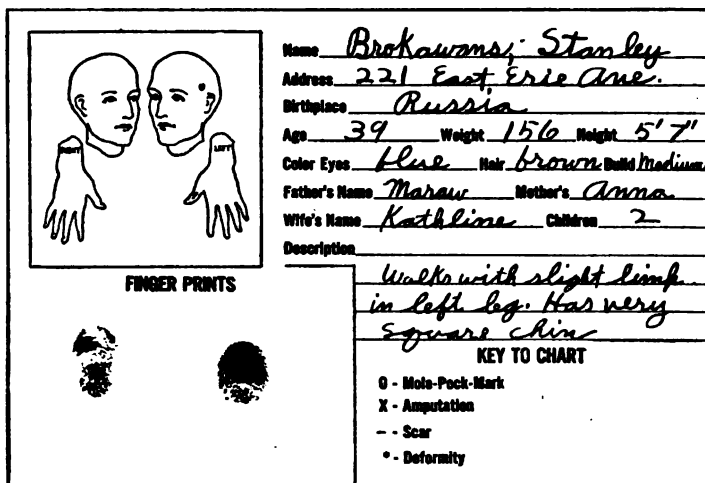 Name Brokawans, Stanley
Address 221 East Erie Ave.
Birthplace Russia
Age 39 Weight 156 Height 5'7"
Color Eyes blue Hair brown Build Medium
Father's Name Maraw Mother's Anna
Wife's Name Kathline Children 2
Description
Walks with slight limp
in left leg. Has very
square chin
RIGHT LEFT
FINGER PRINTS
KEY TO CHART
O - Mole-Pock-Mark
X - Amputation
- - Scar
* - Deformity